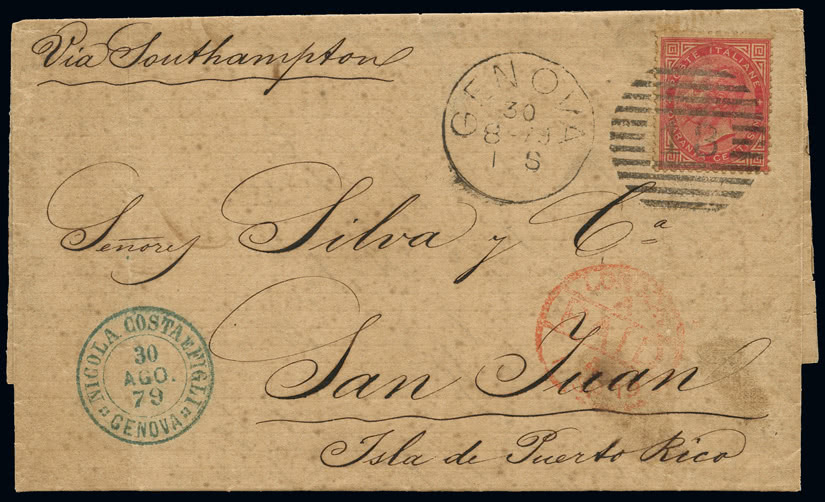 Via Southampton
GENOVA
30
8-79
1 S
POSTE ITALIANE
QUARANTA CENTESIMI
13
Señores Silva y Cª
San Juan
Isla de Puerto Rico
NICOLA COSTA E FIGLI
30
AGO.
79
GENOVA
LONDON
PAID